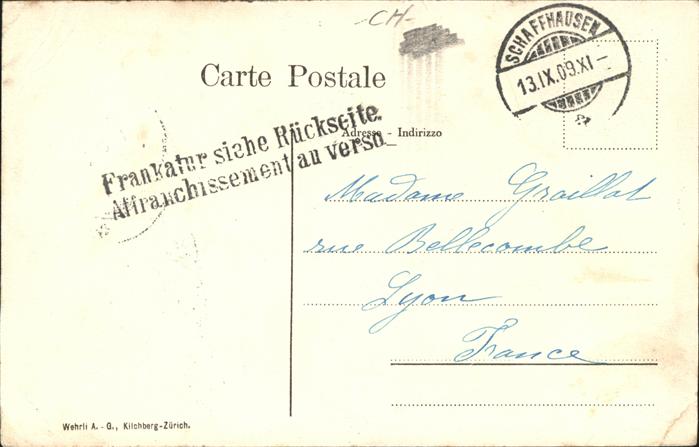 -CH-
SCHAFFHAUSEN
13.IX.09.XI-
Carte Postale
Adresse - Indirizzo
Frankatur siehe Rückseite.
Affranchissement au verso
Madame Graillat
rue Bellecombe
Lyon
France
Wehrli A.-G., Kilchberg-Zürich.